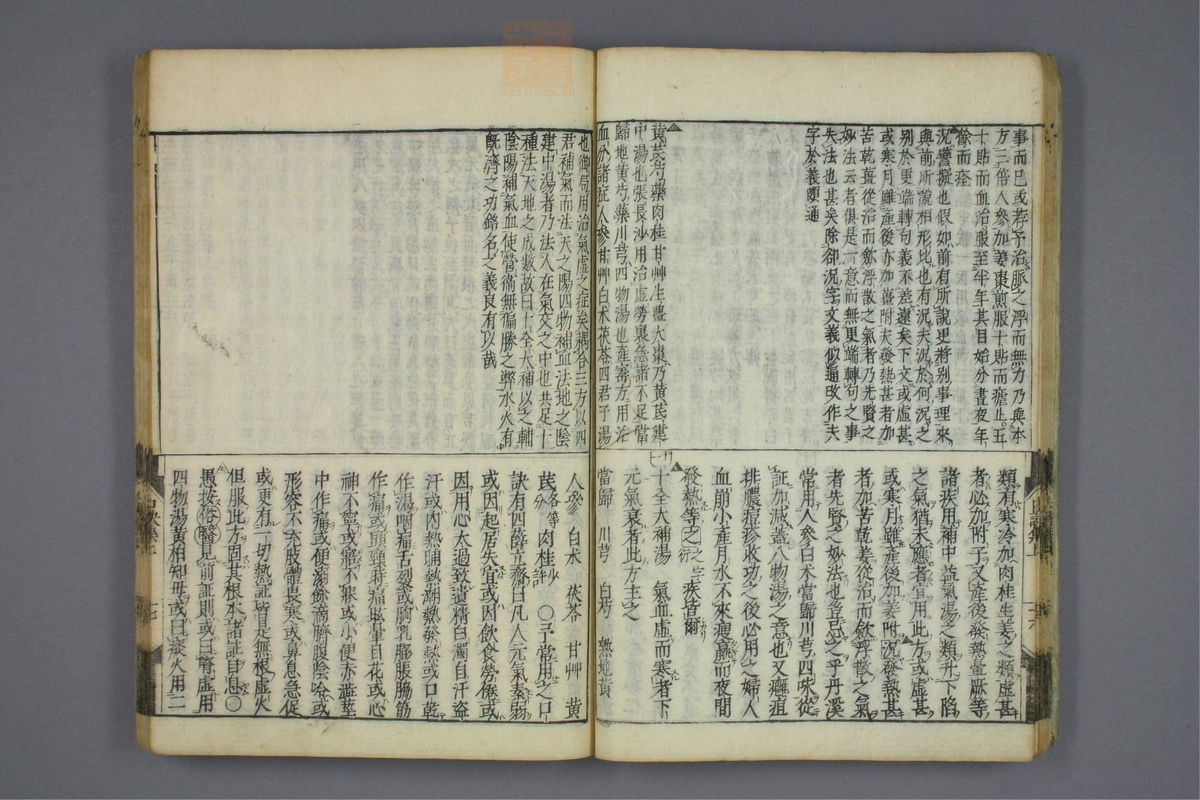 事而已或若予治脈之浮而無力乃與本
方三倍人參加姜棗煎服十貼而瘧止五
十貼而血治服至半年其目始分晝夜年
餘而痊
況譬擬也假如前有所說更將別事理來
與前所說相形比也有況夫況於何況之
別於更端轉句義不差遠矣下文或虛甚
或寒月雖產後亦加薑附夫發熱甚者加
苦乾薑從治而斂浮散之氣者乃先賢之
妙法云者俱是一意而無更端轉句之事
失法也甚矣除卻況字文義似通改作夫
字於義頗通
黃芪芍藥肉桂甘艸生薑大棗乃黃芪建
中湯也張長沙用治虛勞裏急諸不足當
歸地黃芍藥川芎四物湯也產寶方用治
血分諸症人參甘艸白朮茯苓四君子湯
類有寒冷加肉桂生姜之類虛甚
者必加附子又產後發熱量厥等
諸疾用補中益氣湯之類升下陷
之氣猶未應者宜用此方或虛甚
或寒月雖產後加姜附況發熱甚
者加苦乾姜從治而斂浮散之氣
者先賢之妙法也
常用人參白朮當歸川芎四味從
証加減蓋八物湯之意也又癰疽
排膿痘疹收功之後必用之婦人
血崩小產月水不來瘦羸而夜間
發熱等之疾皆爾
十全大補湯 氣血虛而寒者下
元氣衰者此方主之
當歸 川芎 白芍 熟地黃
也御局用治氣虛之症矣耦合三方以四
君補氣而法天之陽四物補血法地之陰
建中湯者乃法人在氣交之中也共足十
種法天地之成數故曰十全大補以之輔
陰陽補氣血使營衛無偏勝之弊水火有
既濟之功銘名之義良有以哉
人參 白朮 茯苓 甘艸 黃
芪各等分 肉桂少許 〇予常用之口
訣有四薛立齋曰凡人元氣素弱
或因起居失宜或因飲食勞倦或
因用心太過致遺精白濁自汗盜
汗或內熱晡熱潮熱發熱或口乾
作渴咽痛舌裂或胸乳膨脹脇筋
作痛或頭頸時痛眩暈目花或心
神不寧或寤不寐或小便赤澁莖
中作痛或便溺餘滴臍腹陰冷或
形容不充肢體畏寒或鼻息急促
或更有一切熱証皆是無根虛火
但服此方固其根本諸証自息〇
愚按俗醫見前証則或曰腎虛用
四物湯黃柏知母或曰痰火用二